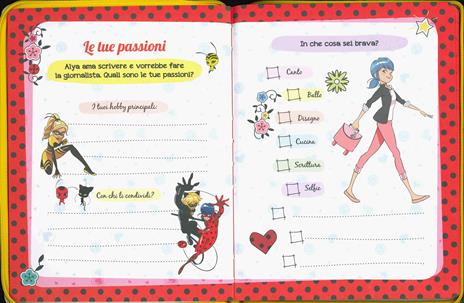 Le tue passioni
Alya ama scrivere e vorrebbe fare
la giornalista. Quali sono le tue passioni?
I tuoi hobby principali:
Con chi li condividi?
In che cosa sei brava?
Canto
Ballo
Disegno
Cucina
Scrittura
Selfie